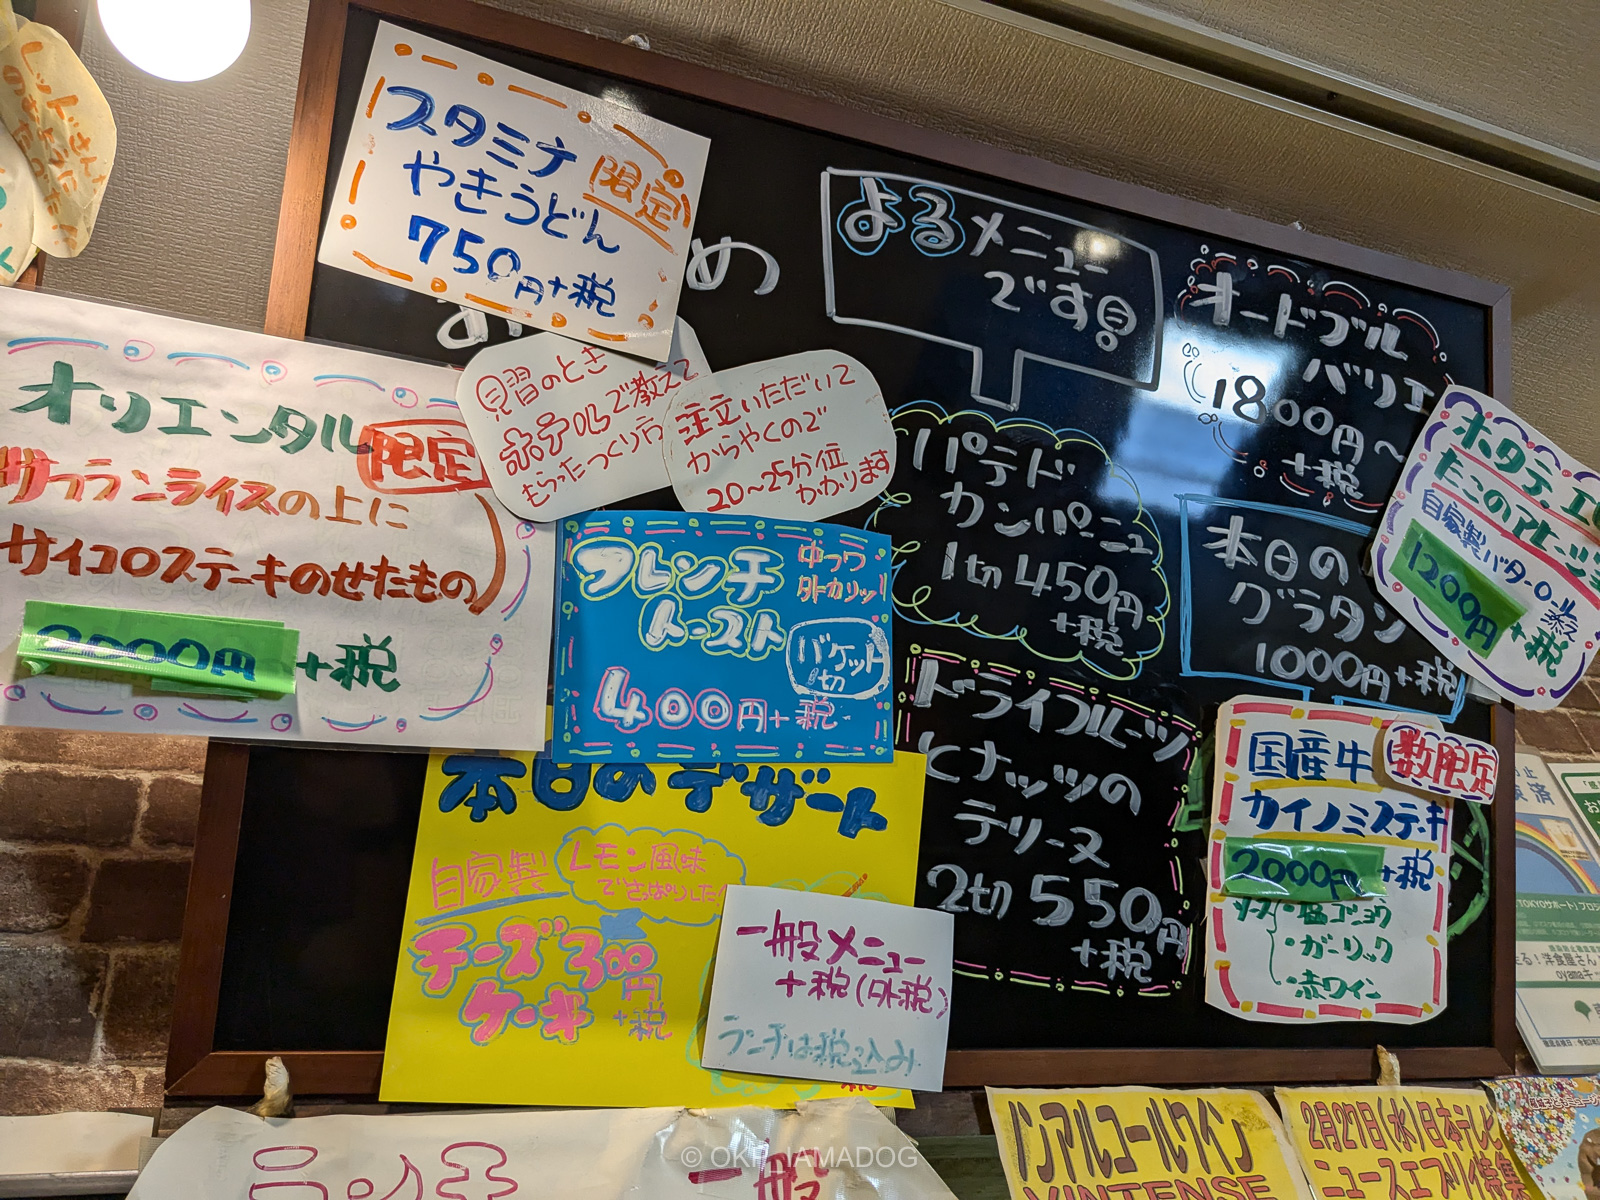 スタミナ
やきうどん
限定
750円+税
め
よるメニュー
です!
オードブル
バリエ
1800円〜
+税
オリエンタル
限定
サフランライスの上に
サイコロステーキのせたもの
2000円+税
見習のとき
ホテルで教えて
もらったつくり方
注文いただいて
からやくので
20〜25分位
かかります
フレンチ
トースト
中フワ
外カリッ!
バケット
1切
400円+税
パテド
カンパーニュ
1切450円
+税
本日の
グラタン
1000円+税
たこの
自家製バターの
1200円
+税
ドライフルーツ
とナッツの
テリーヌ
2切550円
+税
国産牛
数限定
カイノミステーキ
2000円+税
ソース
・塩コショウ
・ガーリック
・赤ワイン
本日のデザート
自家製
レモン風味
でさっぱりした
チーズ
ケーキ
300円
+税
一般メニュー
+税(外税)
ランチは税込み
ノンアルコールワイン
VINTENSE
2月27日(水)日本テレビ
ニュースエブリィ特集
一般
© OKP_IAMADOG